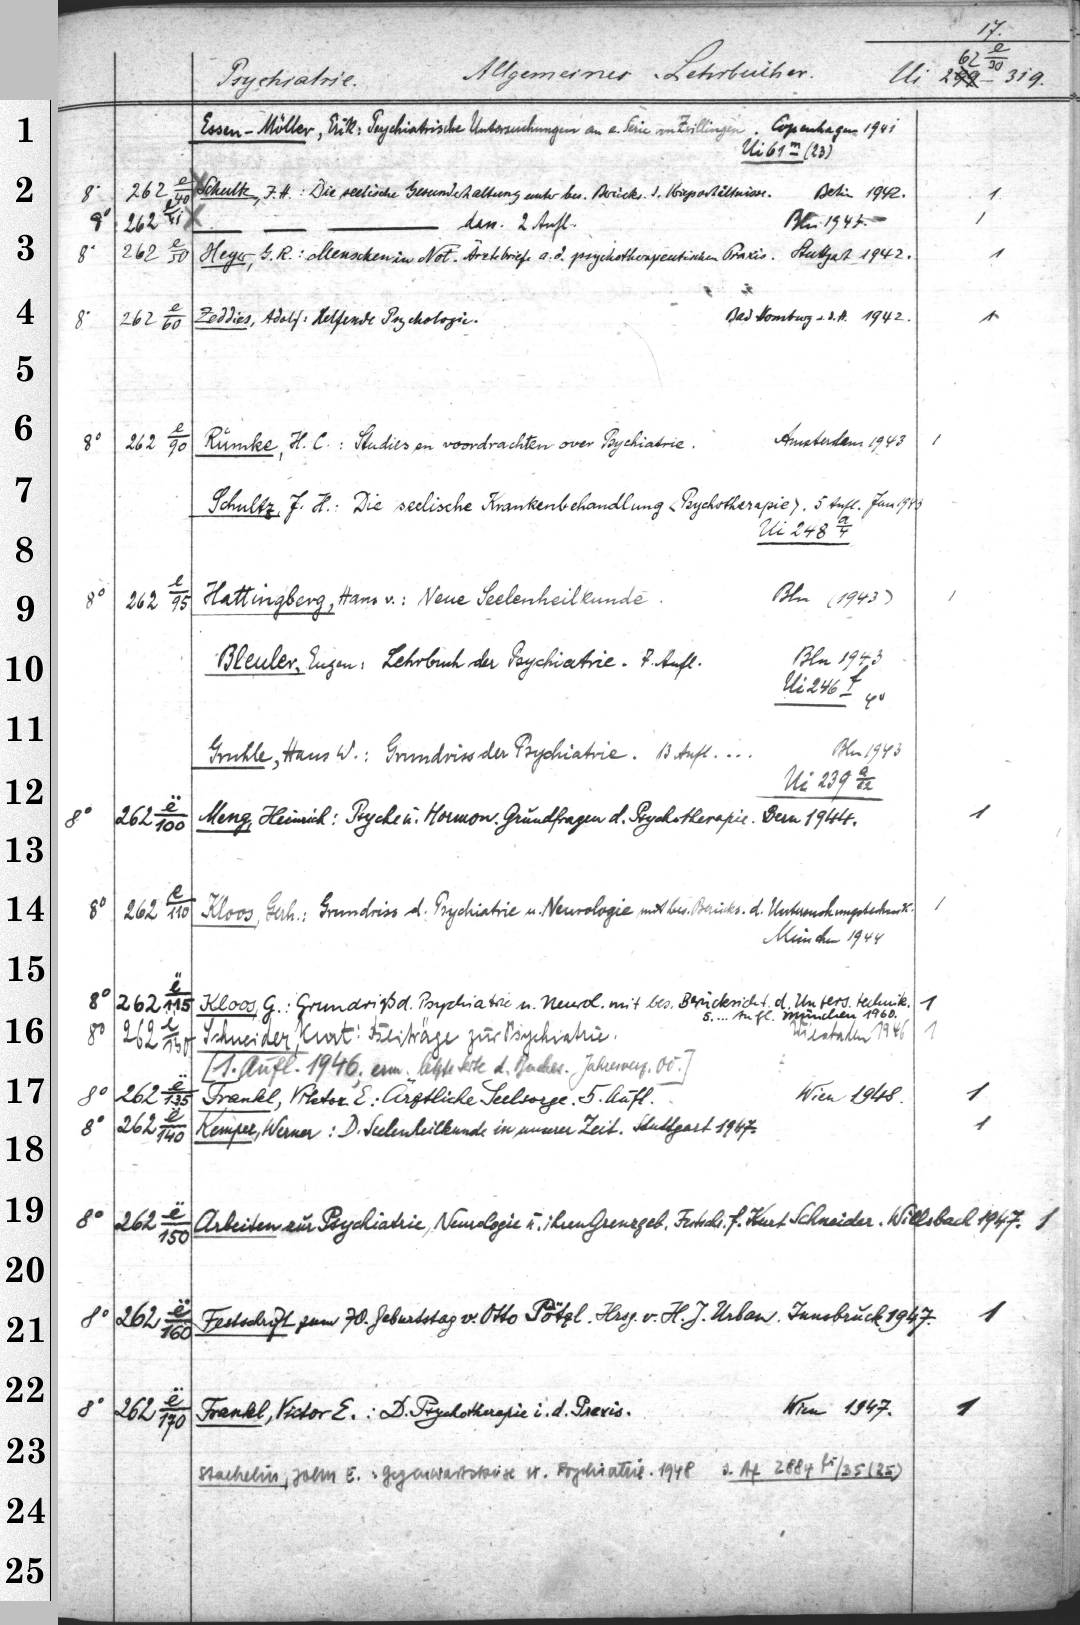 17.
Psychiatrie. Allgemeines Lehrbücher. Ui 62 e/30 299 - 319.
1 Essen-Möller, Erik: Psychiatrische Untersuchungen an e. Serie von Zwillingen. Copenhagen 1941
Ui 61 m (23)
2 8° 262 e/40 Schultz, J.H.: Die seelische Gesunderhaltung unter bes. Berücks. d. Kriegsverhältnisse. Berlin 1942. 1
8° 262 e/41 — — — dass. 2 Aufl. Bln. 1943 1
3 8° 262 e/50 Heyer, G.R.: Menschen in Not. Ärztebriefe a. d. psychotherapeutischen Praxis. Stuttgart 1942. 1
4 8° 262 e/60 Zeddies, Adolf: Helfende Psychologie. Bad Homburg v.d.H. 1942. 1
5
6 8° 262 e/90 Rümke, H. C.: Studies en voordrachten over Psychiatrie. Amsterdam 1943 1
7 Schultz, J. H.: Die seelische Krankenbehandlung <Psychotherapie>. 5 Aufl. Jena 1943
Ui 248 a/4
8
9 8° 262 e/95 Hattingberg, Hans v.: Neue Seelenheilkunde. Bln (1943) 1
10 Bleuler, Eugen: Lehrbuch der Psychiatrie. 7. Aufl. Bln 1943
Ui 246 f 4°
11 Gruhle, Hans W.: Grundriss der Psychiatrie. 13 Aufl. ... Bln 1943
Ui 239 a/22
12 8° 262 ë/100 Meng, Heinrich: Psyche u. Hormon. Grundfragen d. Psychotherapie. Bern 1944. 1
13
14 8° 262 e/110 Kloos, Gerh.: Grundriss d. Psychiatrie u. Neurologie mit bes. Berücks. d. Untersuchungstechnik. 1
München 1944
15
8° 262 ë/115 Kloos, G.: Grundriß d. Psychiatrie u. Neurol. mit bes. Berücksicht. d. Unters. technik. 1
5. ... Aufl. München 1960.
16 8° 262 e/130 Schneider, Kurt: Beiträge zur Psychiatrie. Wiesbaden 1946 1
[1. Aufl. 1946, letzte Seite d. Buches. Jahresverz.]
17 8° 262 ë/135 Frankl, Viktor E.: Ärztliche Seelsorge. 5. Aufl. Wien 1948. 1
8° 262 ë/140 Kemper, Werner: D. Seelenheilkunde in unserer Zeit. Stuttgart 1947. 1
18
19 8° 262 ë/150 Arbeiten zur Psychiatrie, Neurologie u. ihren Grenzgeb. Festschr. f. Kurt Schneider. Willsbach 1947. 1
20
21 8° 262 ë/160 Festschrift zum 70. Geburtstag v. Otto Pötzl. Hrsg. v. H. J. Urban. Innsbruck 1947. 1
22 8° 262 ë/170 Frankl, Victor E.: D. Psychotherapie i. d. Praxis. Wien 1947. 1
23 Staehelin, John E.: Gegenwartskrise u. Psychiatrie. 1948 s. Af 2884 fi/35 (25)
24
25